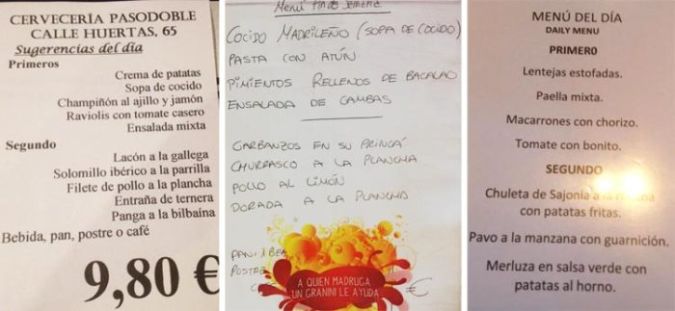 CERVECERÍA PASODOBLE
CALLE HUERTAS, 65
Sugerencias del día
Primeros
Crema de patatas
Sopa de cocido
Champiñón al ajillo y jamón
Raviolis con tomate casero
Ensalada mixta
Segundo
Lacón a la gallega
Solomillo ibérico a la parrilla
Filete de pollo a la plancha
Entraña de ternera
Panga a la bilbaína
Bebida, pan, postre o café
9,80 €
Menú fin de semana
COCIDO MADRILEÑO (SOPA DE COCIDO)
PASTA CON ATÚN
PIMIENTOS RELLENOS DE BACALAO
ENSALADA DE GAMBAS
GARBANZOS EN SU PRINGÁ
CHURRASCO A LA PLANCHA
POLLO AL LIMÓN
DORADA A LA PLANCHA
PAN
POSTRE
A QUIEN MADRUGA
UN GRANINI LE AYUDA
€
MENÚ DEL DÍA
DAILY MENU
PRIMERO
Lentejas estofadas.
Paella mixta.
Macarrones con chorizo.
Tomate con bonito.
SEGUNDO
Chuleta de Sajonia a la
con patatas fritas.
Pavo a la manzana con guarnición.
Merluza en salsa verde con
patatas al horno.